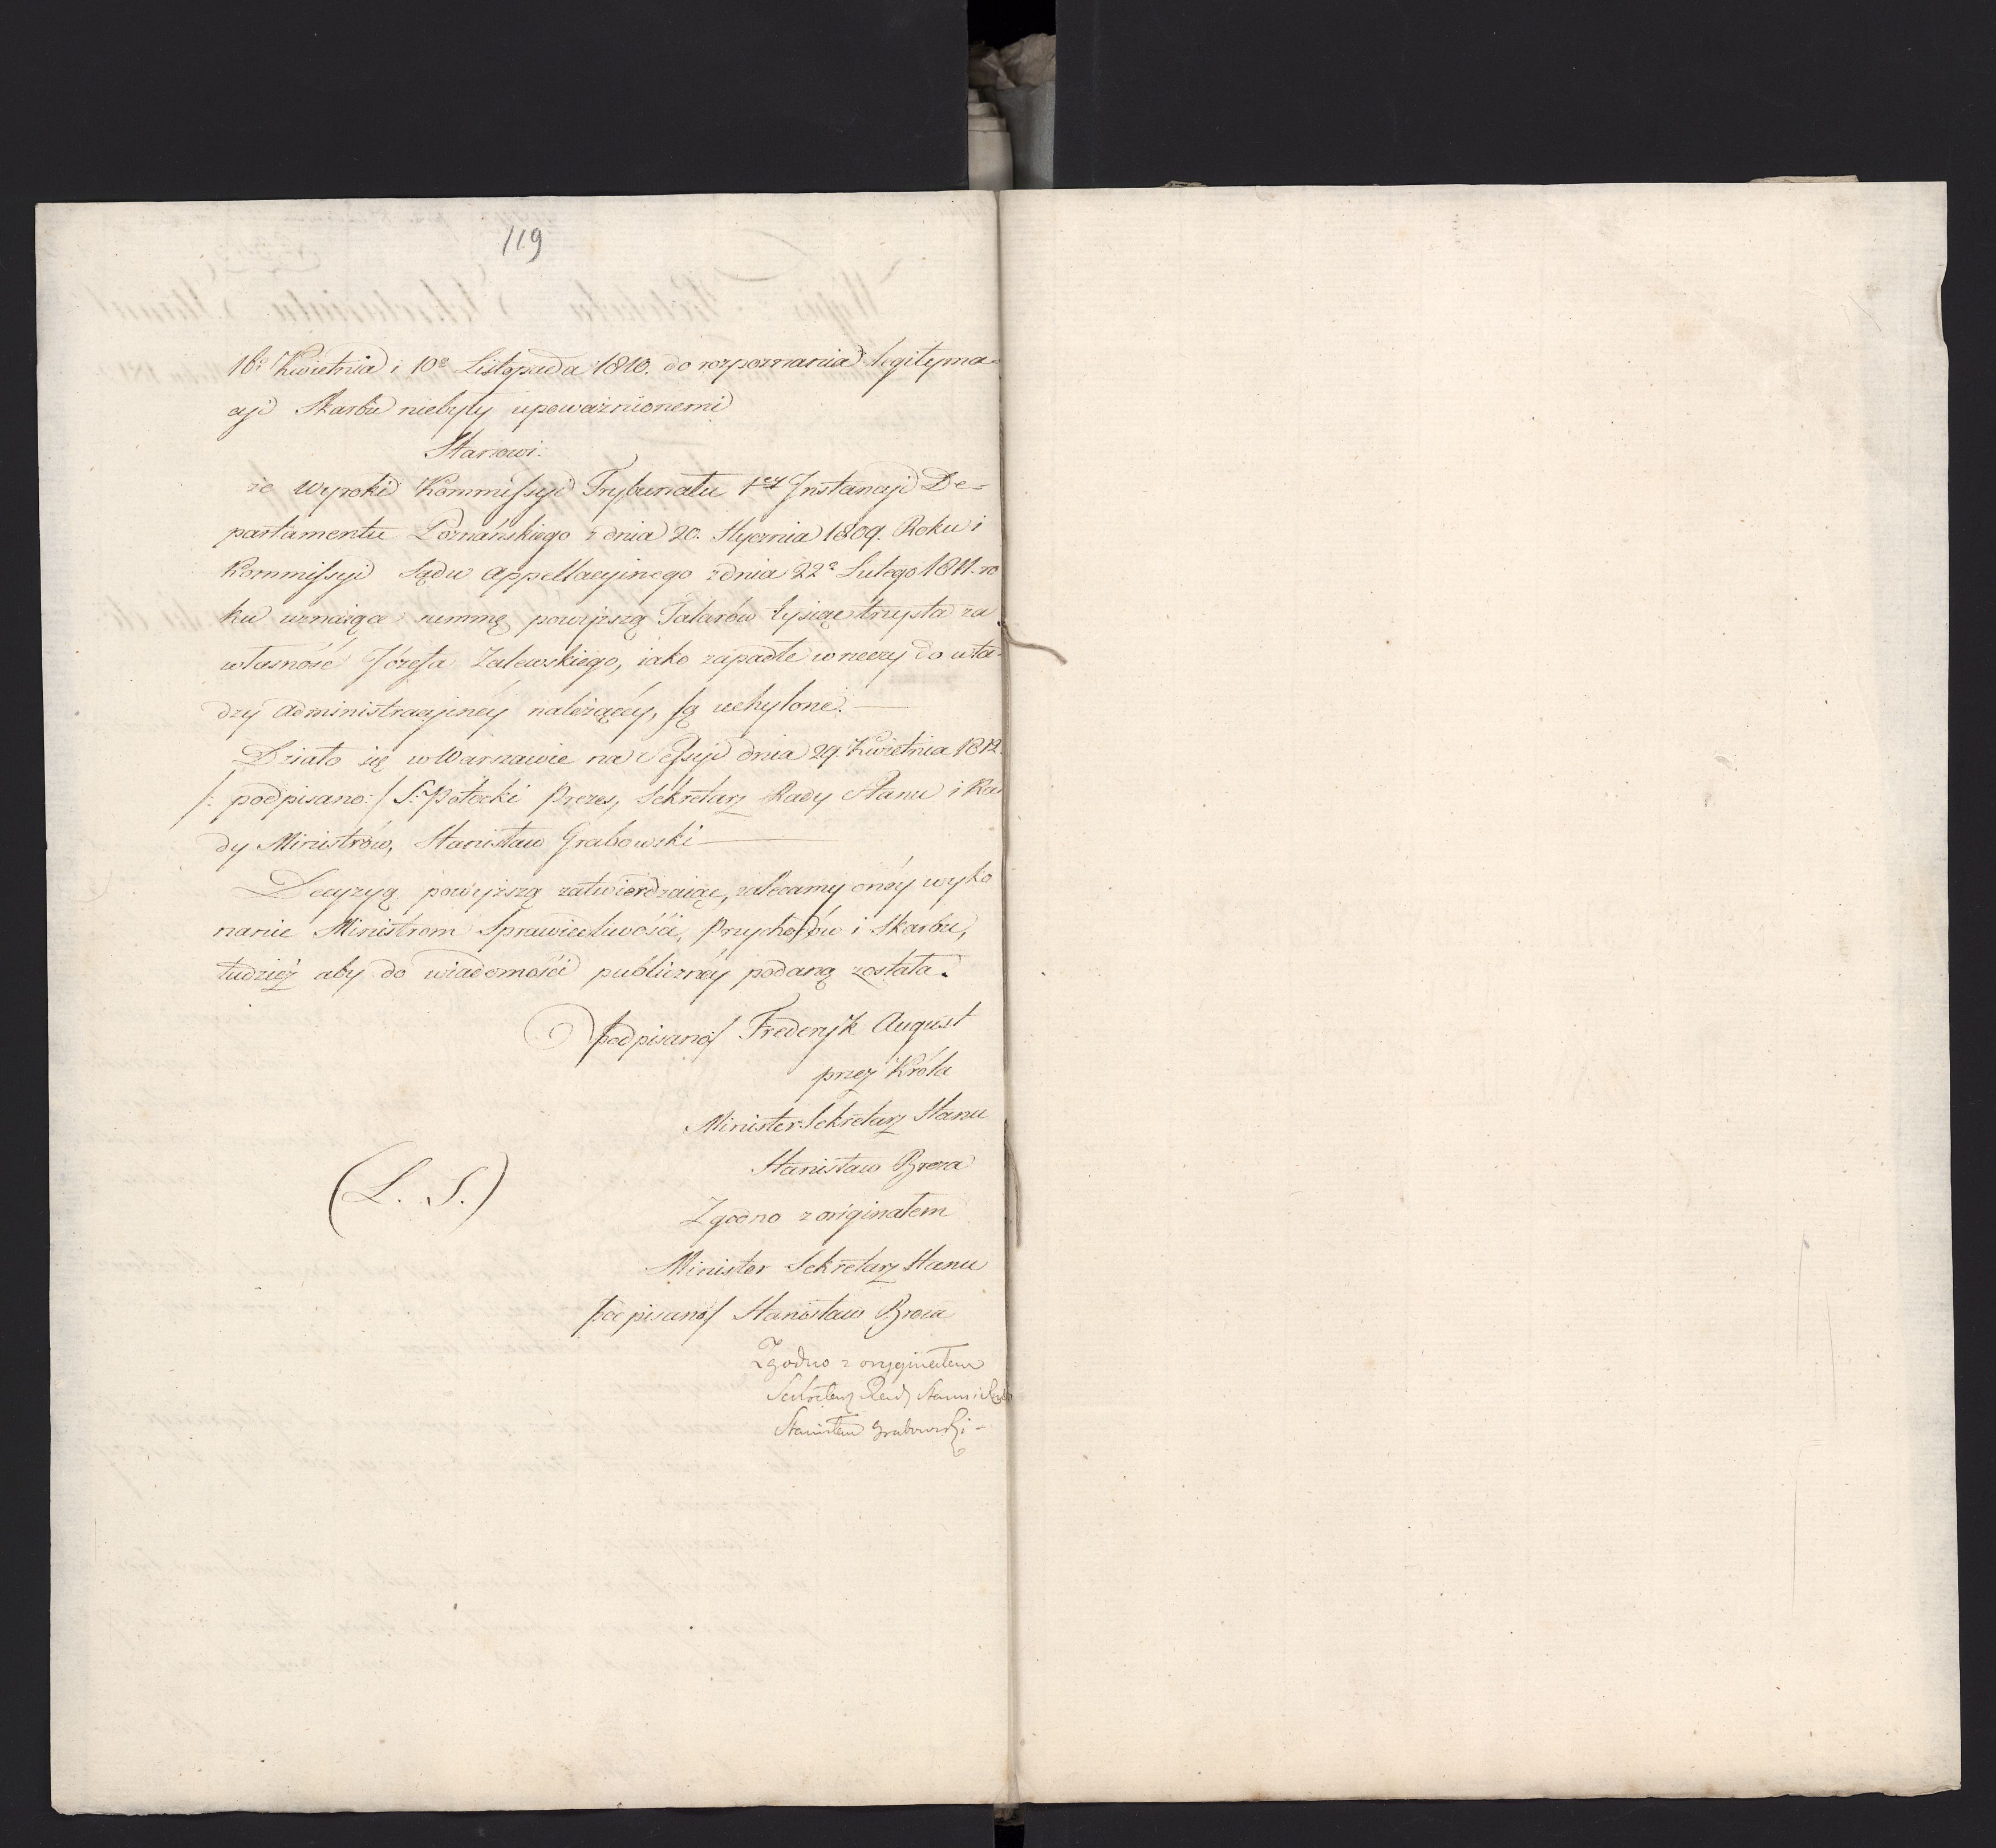 119
16º Kwietnia i 10º Listopada 1810. do rozpoznania legityma=
cyi Skarbu niebyły upoważnionemi
Stanowi:
że Wyroki Kommissyi Trybunału 1ey Instancyi De=
partamentu Poznańskiego z dnia 20. Stycznia 1809. Roku i
Kommissyi Sądu Appellacyinego z dnia 22º Lutego 1811. ro
ku uznaiące summę powyższą Talarów tysiąc trzysta za
własność Józefa Zalewskiego, iako zapadłe w rzeczy do wła=
dzy administracyinéy należącéy, są uchylone.
Działo się w Warszawie na Sessyi dnia 29. Kwietnia 1812.
/: podpisano:/ S: Potocki Prezes, Sekretarz Rady Stanu i Ra
dy Ministrów, Stanisław Grabowski
Decyzyą powyższą zatwierdzaiąc, zalecamy onéy wyko
nanie Ministrom Sprawiedliwości, Przychodów i Skarbu,
tudzież aby do wiadomości publicznéy podaną została.
/podpisano/ Frederyk August
przez Króla
Minister Sekretarz Stanu
Stanisław Breza
(L. S.)
Zgodno z originałem
Minister Sekretarz Stanu
/podpisano/ Stanisław Breza
Zgodno z oryginałem
Sekretarz Rady Stanu i Rady
Stanisław Grabowski